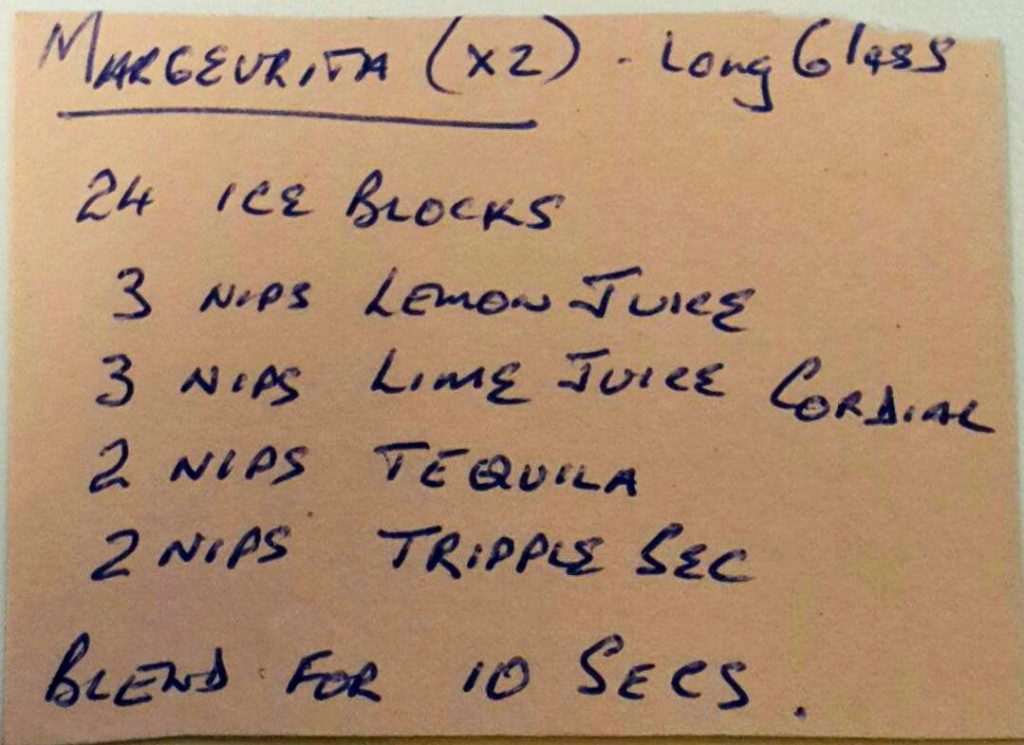 MARGEURITA (x2) - Long Glass
24 ICE BLOCKS
3 NIPS LEMON JUICE
3 NIPS LIME JUICE CORDIAL
2 NIPS TEQUILA
2 NIPS TRIPPLE SEC
BLEND FOR 10 SECS.